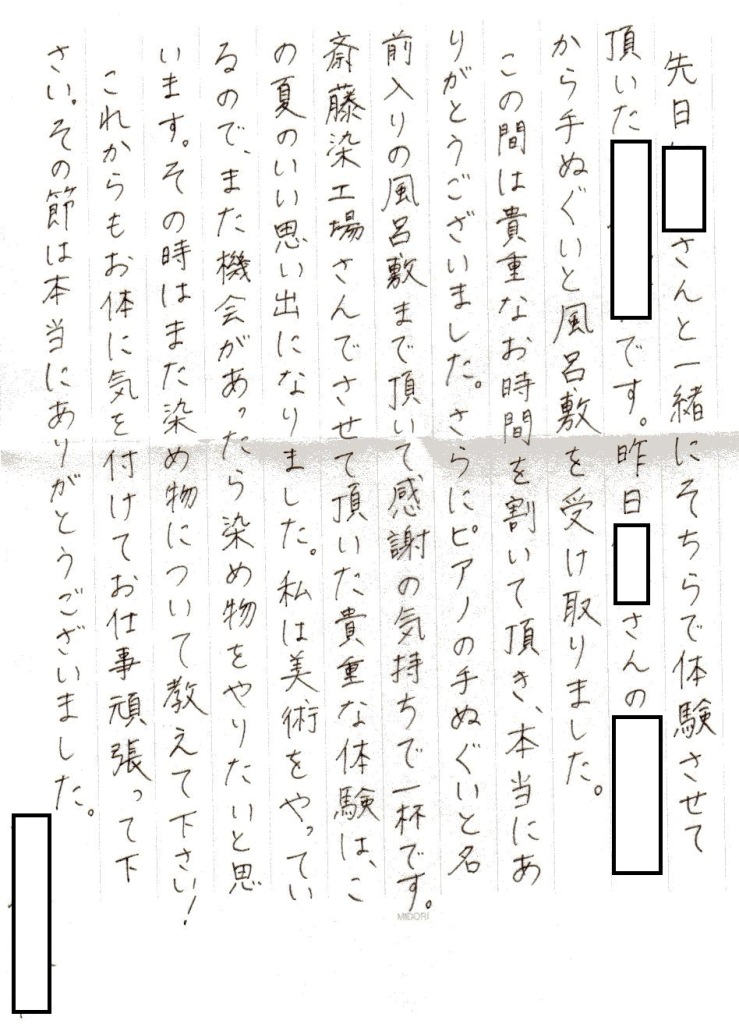 先日、さんと一緒にそちらで体験させて
頂いたです。昨日さんの
から手ぬぐいと風呂敷を受け取りました。
この間は貴重なお時間を割いて頂き、本当にあ
りがとうございました。さらにピアノの手ぬぐいと名
前入りの風呂敷まで頂いて感謝の気持ちで一杯です。
斎藤染工場さんでさせて頂いた貴重な体験は、こ
の夏のいい思い出になりました。私は美術をやってい
るので、また機会があったら染め物をやりたいと思
います。その時はまた染め物について教えて下さい！
これからもお体に気を付けてお仕事頑張って下
さい。その節は本当にありがとうございました。
MIDORI